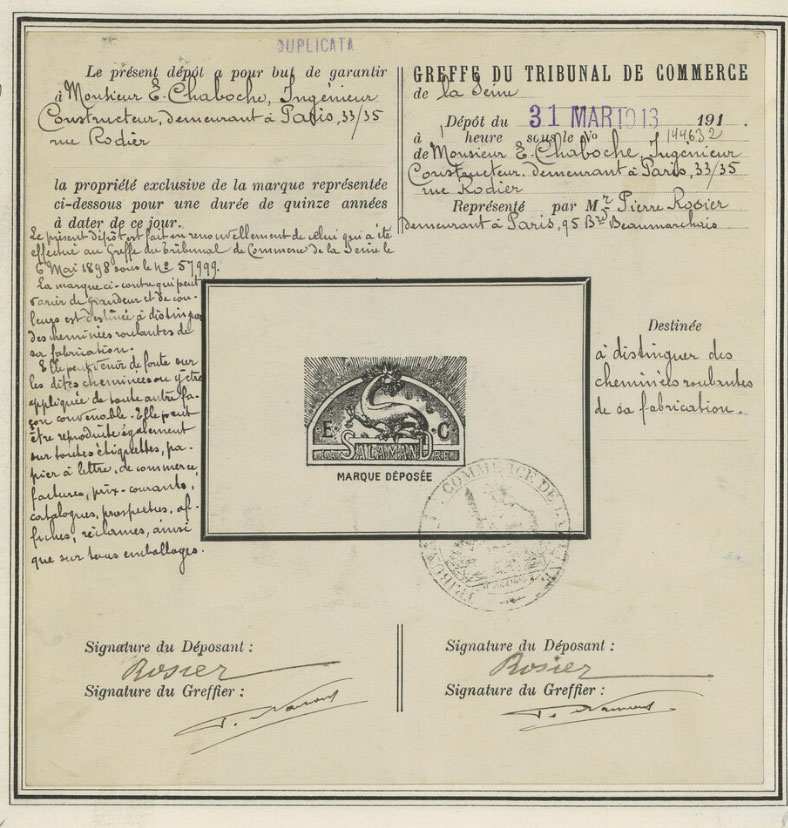 DUPLICATA
Le présent dépôt a pour but de garantir
à Monsieur E. Chaboche, Ingénieur
Constructeur, demeurant à Paris, 33/35
rue Rodier
la propriété exclusive de la marque représentée
ci-dessous pour une durée de quinze années
à dater de ce jour.
Le présent dépôt est fait en renouvellement de celui qui a été
effectué au Greffe du tribunal de Commerce de la Seine le
6 Mai 1898 sous le no 57999.
La marque ci-contre qui peut
varier de grandeur et de cou-
leurs est destinée à distinguer
des cheminées roulantes de
sa fabrication.
Elle peut venir de fonte sur
les dites cheminées ou y être
appliquée de toute autre fa-
çon convenable. Elle peut
être reproduite également
sur toutes étiquettes, pa-
pier à lettre, de commerce,
factures, prix-courants,
catalogues, prospectus, af-
fiches, réclames, ainsi
que sur tous emballages.
GREFFE DU TRIBUNAL DE COMMERCE
de la Seine
Dépôt du 31 MAR 1913 191
à heure sous le No 144632
de Monsieur E. Chaboche, Ingénieur
Constructeur. demeurant à Paris, 33/35
rue Rodier
Représenté par Mr Pierre Rosier
demeurant à Paris, 95 Bd Beaumarchais
E. C.
LA SALAMANDRE
MARQUE DÉPOSÉE
Destinée
à distinguer des
cheminées roulantes
de sa fabrication.
COMMERCE DE LA SEINE
Signature du Déposant :
Rosier
Signature du Greffier :
Signature du Déposant :
Rosier
Signature du Greffier :